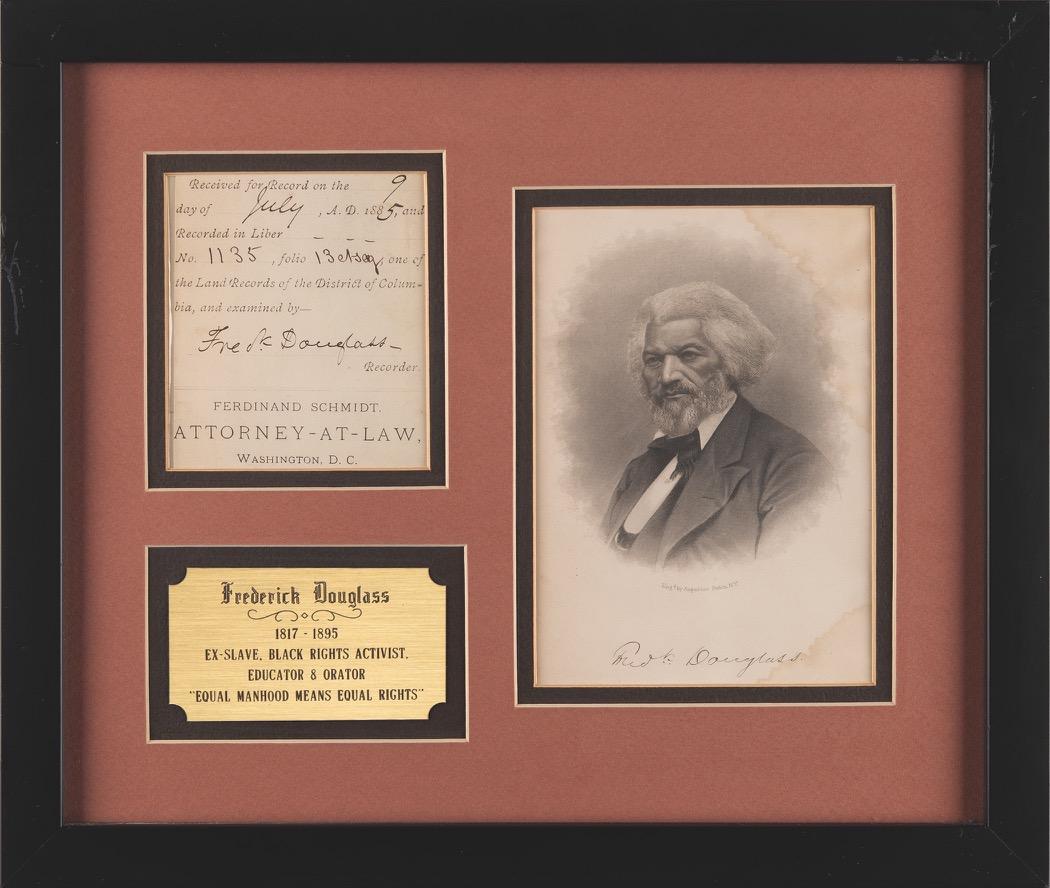 Received for Record on the 9
day of July, A. D. 1885, and
Recorded in Liber
No. 1135, folio 13 et seq, one of
the Land Records of the District of Colum-
bia, and examined by—
Fredk Douglass
Recorder.
FERDINAND SCHMIDT.
ATTORNEY-AT-LAW,
WASHINGTON, D. C.
Frederick Douglass
1817 - 1895
EX-SLAVE, BLACK RIGHTS ACTIVIST,
EDUCATOR & ORATOR
"EQUAL MANHOOD MEANS EQUAL RIGHTS"
Eng'd by Augustus Robin, N.Y.
Fredk Douglass